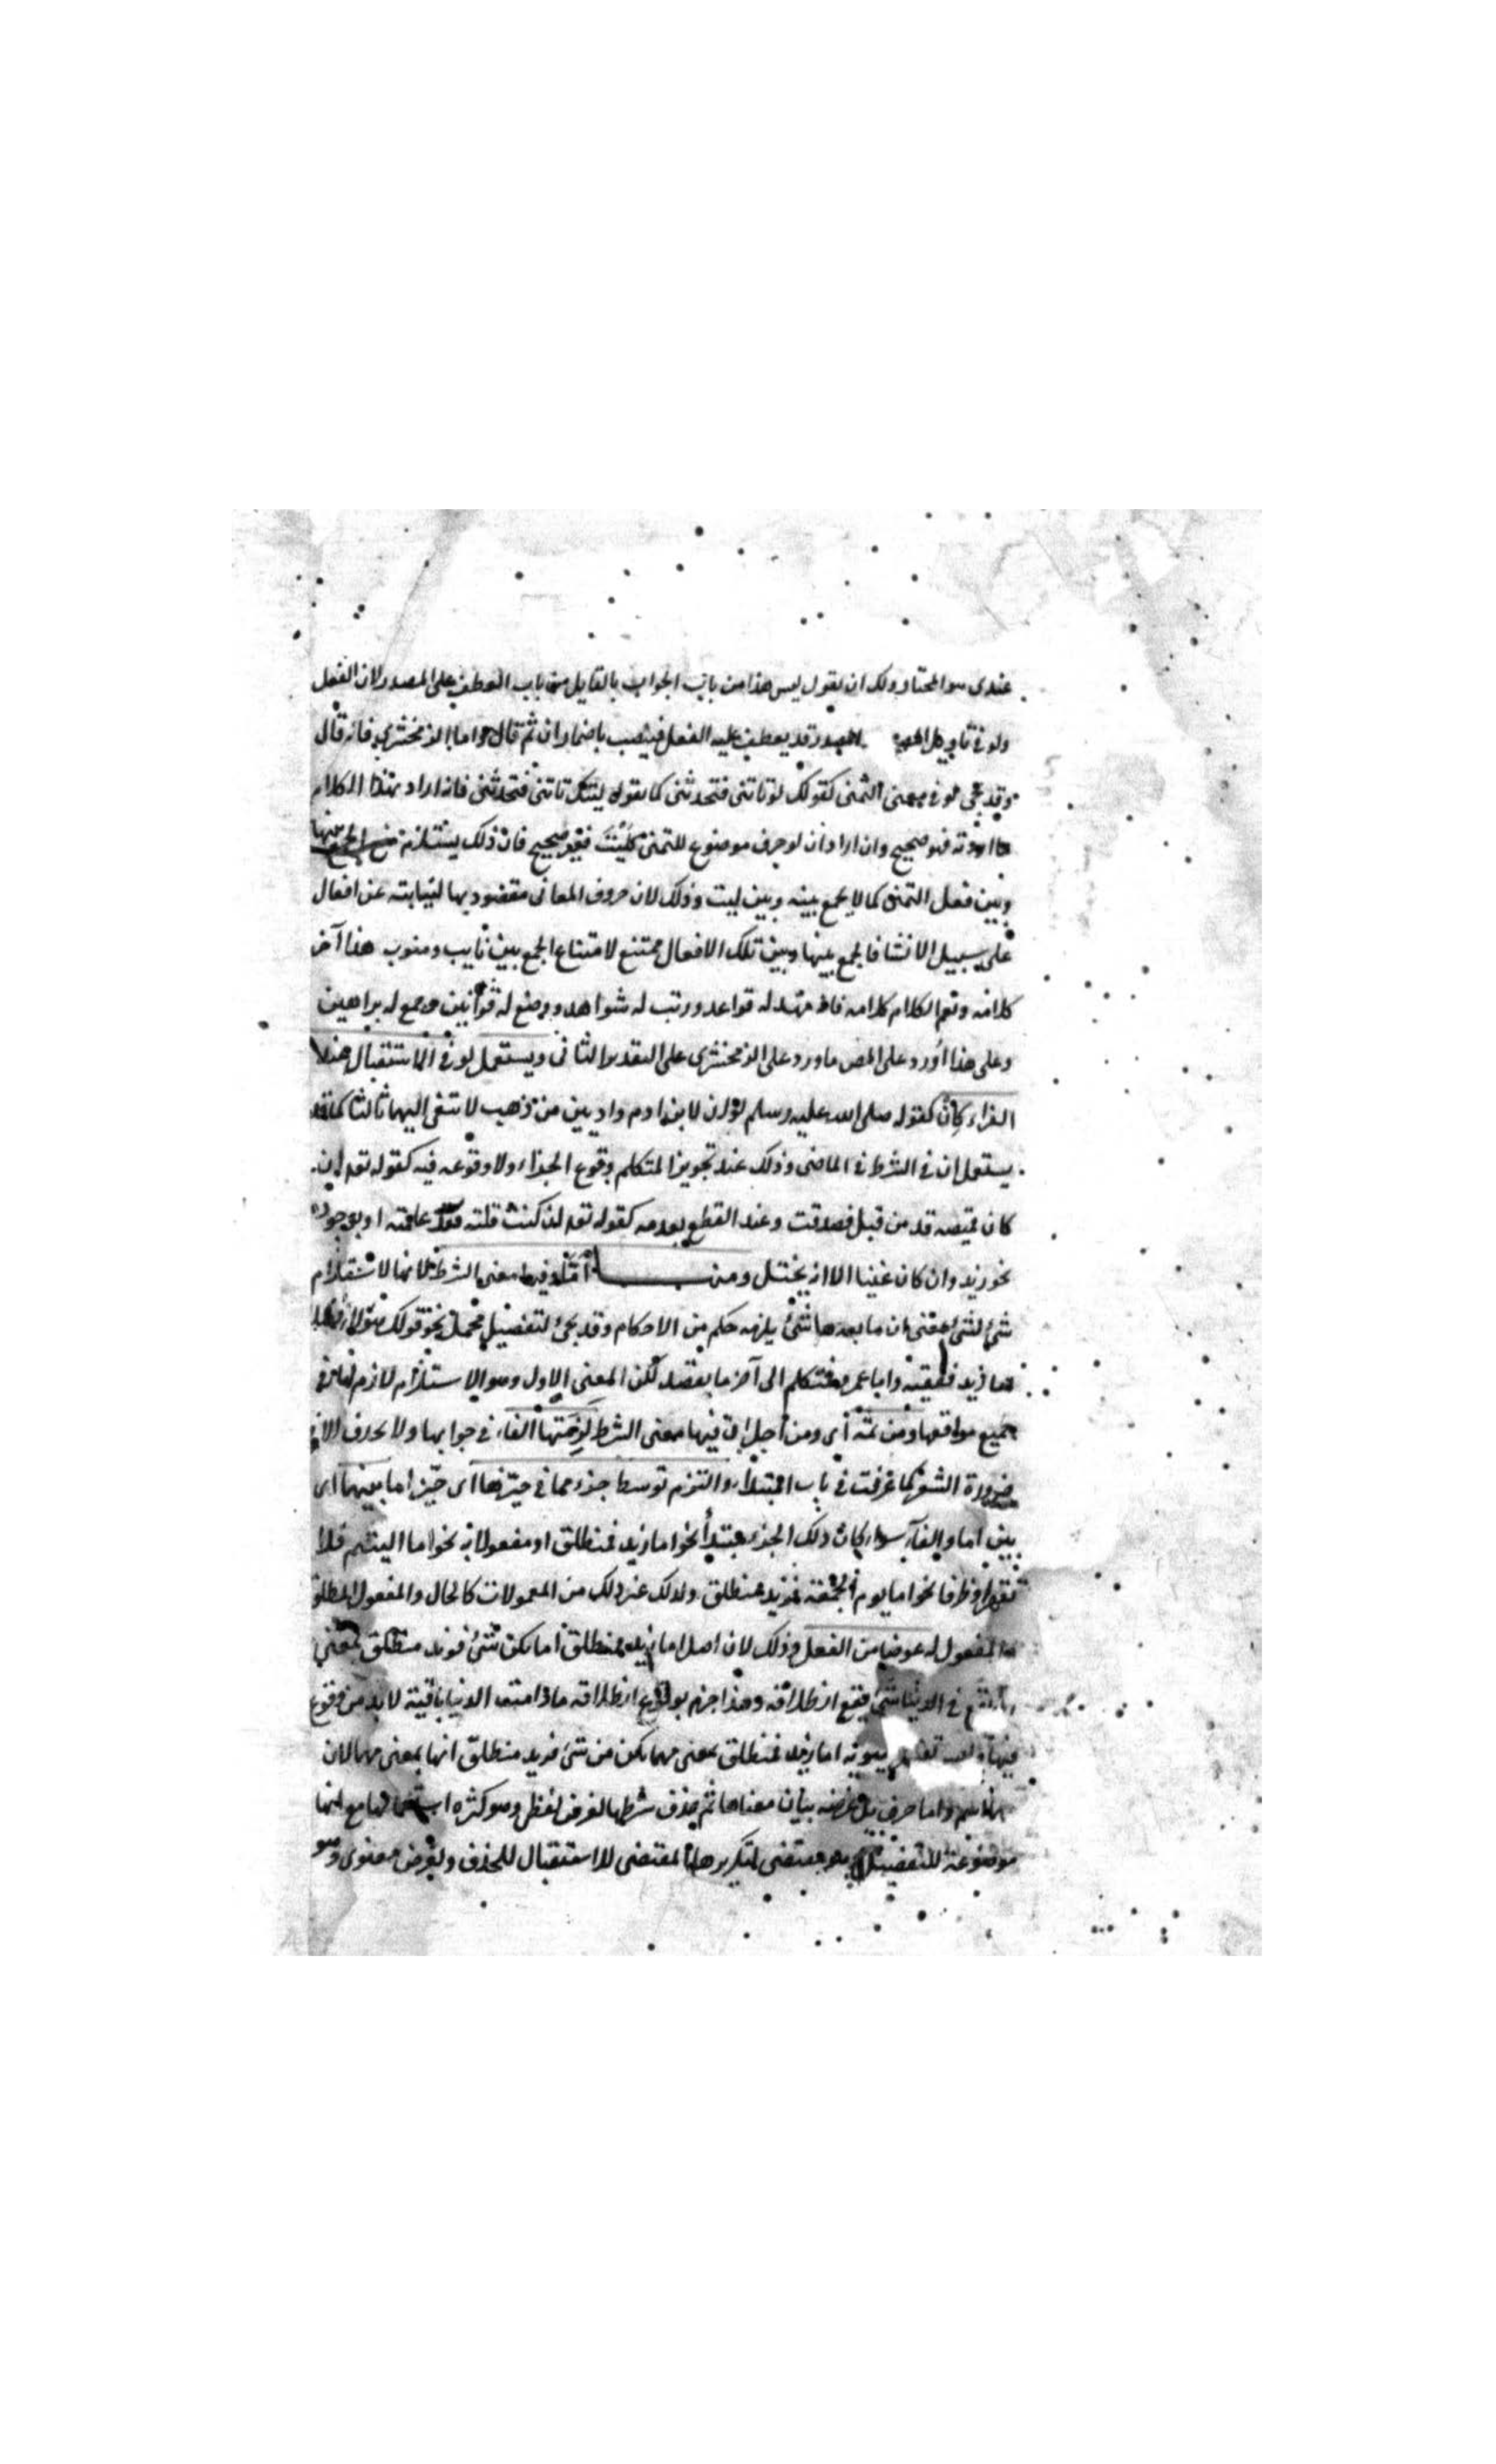 عندى هو المختار ولك ان يقول ليس هذا من باب الجواب بالفا بل من باب العطف على المصدر لان الفعل
ولو فى تاويل المصدر قد يعطف عليه الفعل فينصب باضمار ان ثم قال واما الزمخشرى فانه قال
وقد تجى لو فى معنى التمنى كقولك لو تاتنى فتحدثنى كما تقول ليتك تاتنى فتحدثنى فان اراد بهذا الكلام
ما اردته فهو صحيح وان اراد ان لو حرف موضوع للتمنى كليت فغير صحيح فان ذلك يستلزم منع الجمع بينها
وبين فعل التمنى كما لا يجمع بينه وبين ليت وذلك لان حروف المعانى مقصود بها النيابة عن افعال
على سبيل الانشا فالجمع بينها وبين تلك الافعال ممتنع لامتناع الجمع بين نايب ومنوب هذا آخر
كلامه ونعم الكلام كلامه فانه مهد له قواعد ورتب له شواهد ووضع له قوانين وجمع له براهين
وعلى هذا اورد على المص ما ورد على الزمخشرى على التقدير الثانى ويستعمل لو فى الاستقبال عند
الفراء كان كقوله صلى الله عليه وسلم لو ان لابن ادم واديين من ذهب لابتغى اليهما ثالثا كما قد
يستعمل ان فى الشرط فى الماضى وذلك عند تجويز المتكلم وقوع الجزاء ولا وقوعه فيه كقوله تعه ان
كان قميصه قد من قبل فصدقت وعند القطع بعدمه كقوله تعه ان كنت قلته فقد علمته او بوجوده
نحو زيد وان كان غنيا الا انه بخيل ومنه اما وفيها معنى الشرط لانها لاستلزام
شئ لشئ اعنى ان ما بعدها شئ يلزمه حكم من الاحكام وقد يجئ لتفصيل مجمل نحو قولك هؤلاء فضلا
اما زيد ففقيه واما عمرو فمتكلم الى آخر ما يقصد لكن المعنى الاول وهو الاستلزام لازم لها فى
جميع مواقعها ومن ثمه أى ومن أجل ان فيها معنى الشرط لزمتها الفاء فى جوابها ولا يحذف الا فى
ضرورة الشعر كما عرفت فى باب المبتدأ والتزم توسط جزء مما فى حيزها اى حيز اما بينهما اى
بين اما والفآ سواء كان ذلك الجزء مبتدأ نحو اما زيد فمنطلق او مفعولا به نحو اما اليتيم فلا
تقهر او ظرفا نحو اما يوم الجمعة فزيد منطلق وكذلك غير ذلك من المعمولات كالحال والمفعول المطلق
والمفعول له عوضا من الفعل وذلك لان اصل اما زيد فمنطلق اما يكن شئ فزيد منطلق بمعنى
ان يقع فى الدنيا شئ يقع انطلاقه وهذا جزم بوقوع انطلاقه ما دامت الدنيا باقية لا بد من وقوع
فيها سيبويه اما زيد فمنطلق بمعنى مهما يكن من شئ فزيد منطلق انها بمعنى مهما لان
مهما اسم واما حرف بل غرضه بيان معناها ثم حذف شرطها لغرض لفظى وهو كثرة استعمالها مع انها
موضوعة للتفصيل وهو مقتضى لتكريرها المقتضى للاستقبال للحذف ولغرض معنوى وهو